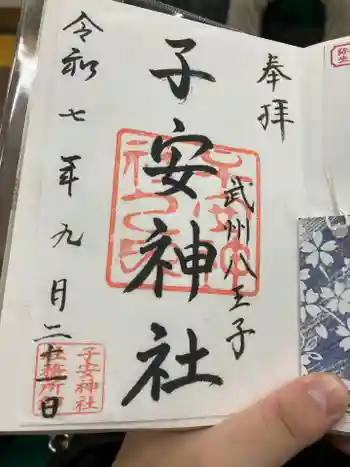 奉拝
武州八王子
子安神社
令和七年九月二十一日
子安神社
社務所印
弥生